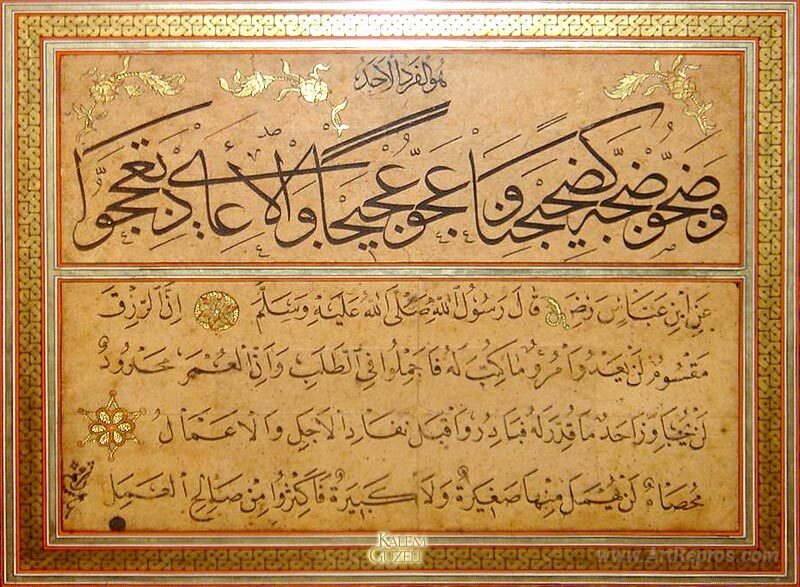 هو الفرد الاحد
وضجوا ضجة كضجيجنا وعجوا عجيجا والاعادي تعججوا
عن ابن عباس رضه قال رسول الله صلى الله عليه وسلم ان الرزق
مقسوم لن يعدوا مرؤ ما كتب له فاجملوا في الطلب وان العمر محدود
لن يجاوز احد ما قدر له فبادروا قبل نفاد الاجل والاعمال
محصاة لن يهمل منها صغيرة ولا كبيرة فاكثروا من صالح العمل
KALEM
GÜZELİ
www.ArtRepros.com